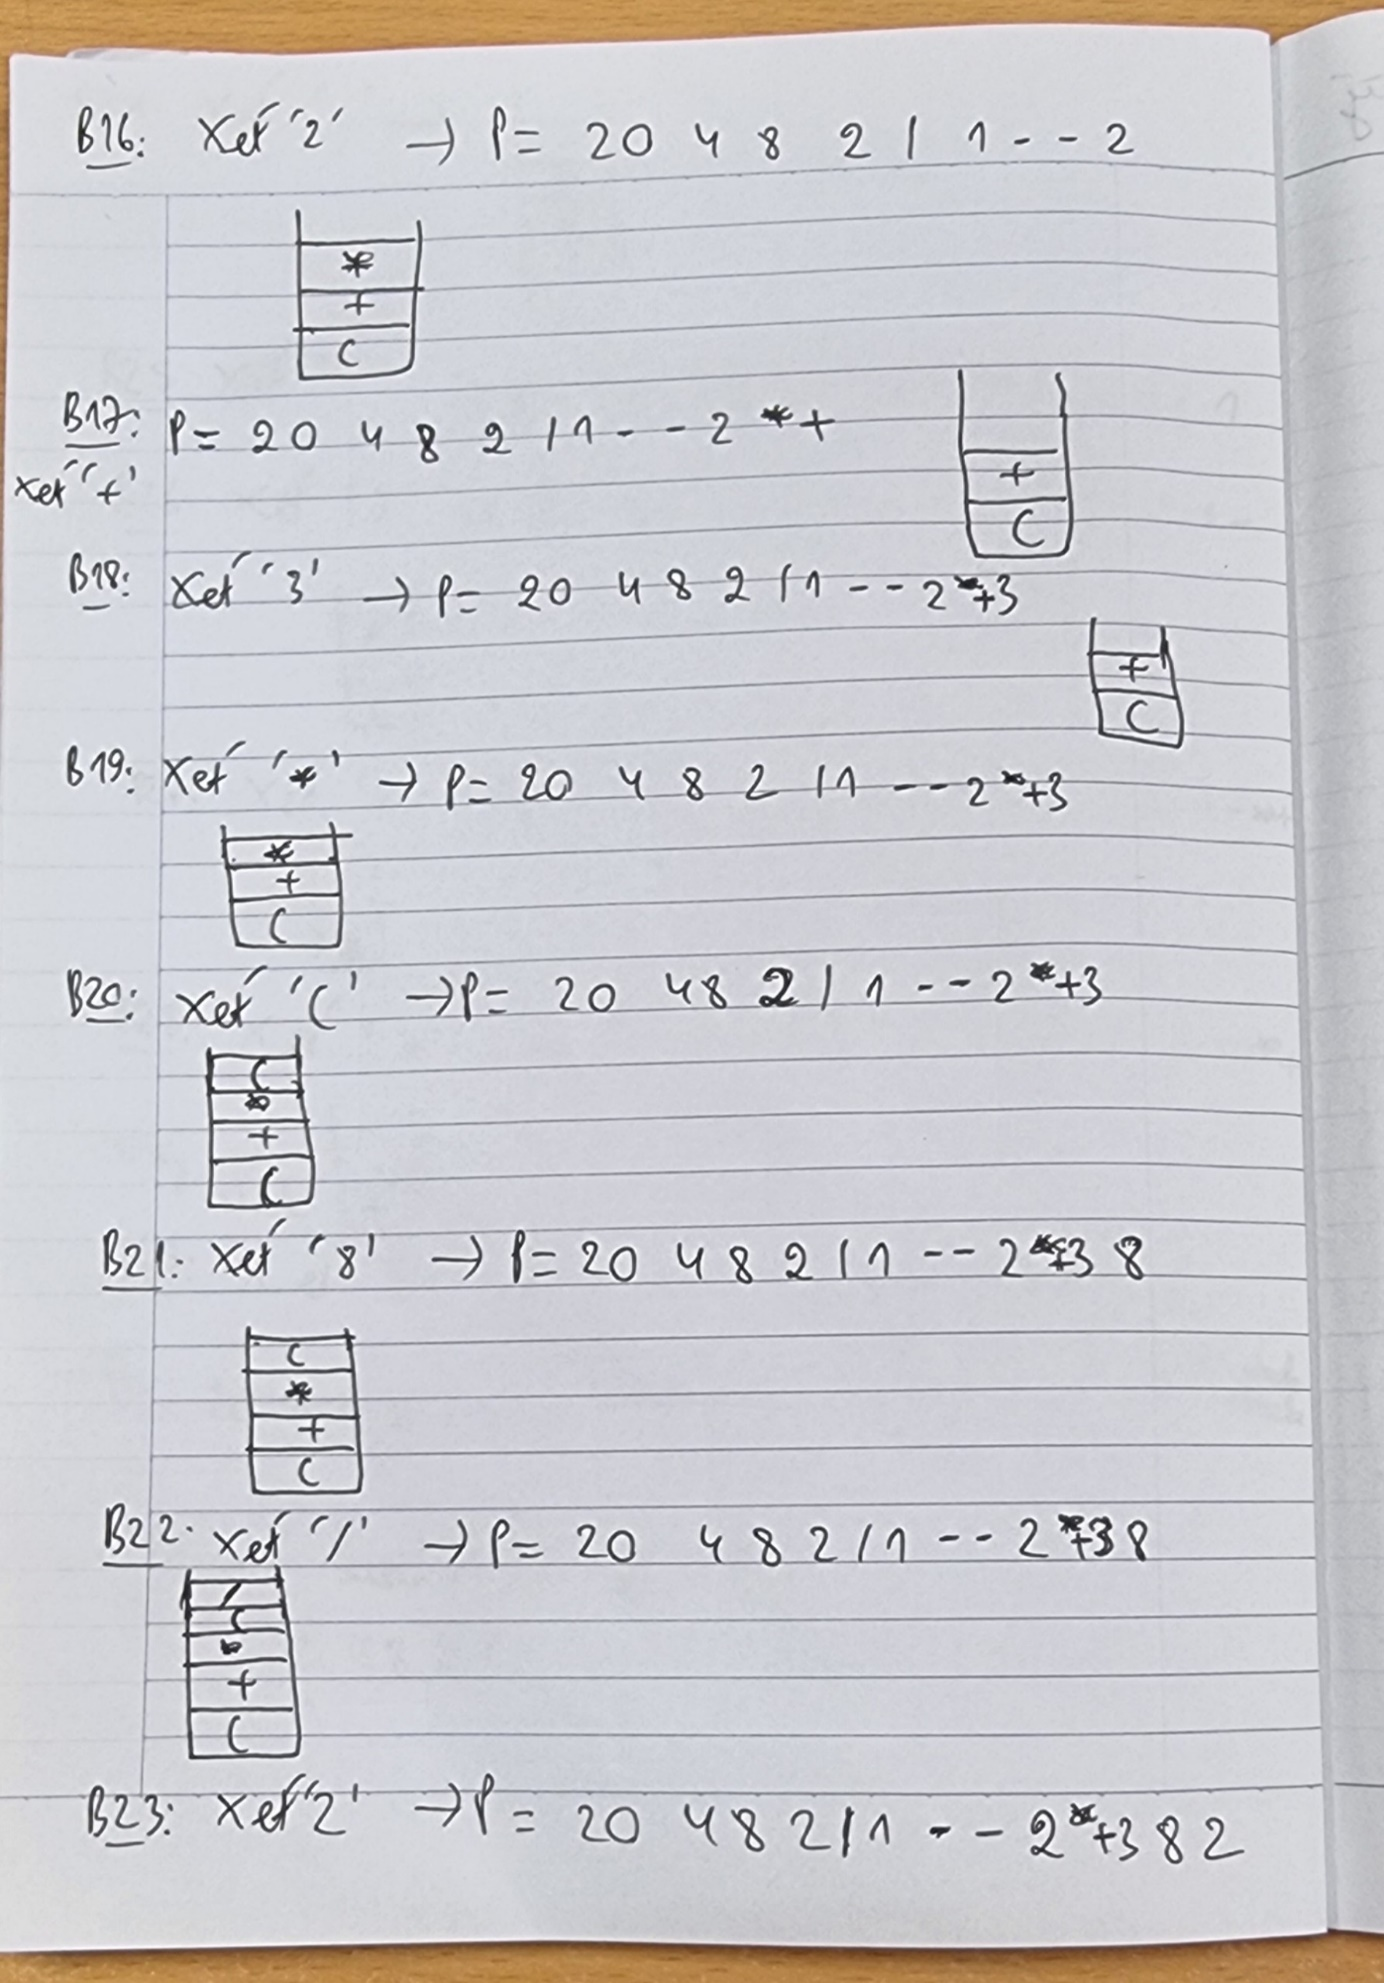 B16: Xét '2' → P = 20 4 8 2 / 1 - - 2
*
+
(
B17: P = 20 4 8 2 / 1 - - 2 * +
Xét '+'
+
(
B18: Xét '3' → P = 20 4 8 2 / 1 - - 2 * + 3
+
(
B19: Xét '*' → P = 20 4 8 2 / 1 - - 2 * + 3
*
+
(
B20: Xét '(' → P = 20 4 8 2 / 1 - - 2 * + 3
(
*
+
(
B21: Xét '8' → P = 20 4 8 2 / 1 - - 2 * + 3 8
(
*
+
(
B22: Xét '/' → P = 20 4 8 2 / 1 - - 2 * + 3 8
/
(
*
+
(
B23: Xét '2' → P = 20 4 8 2 / 1 - - 2 * + 3 8 2